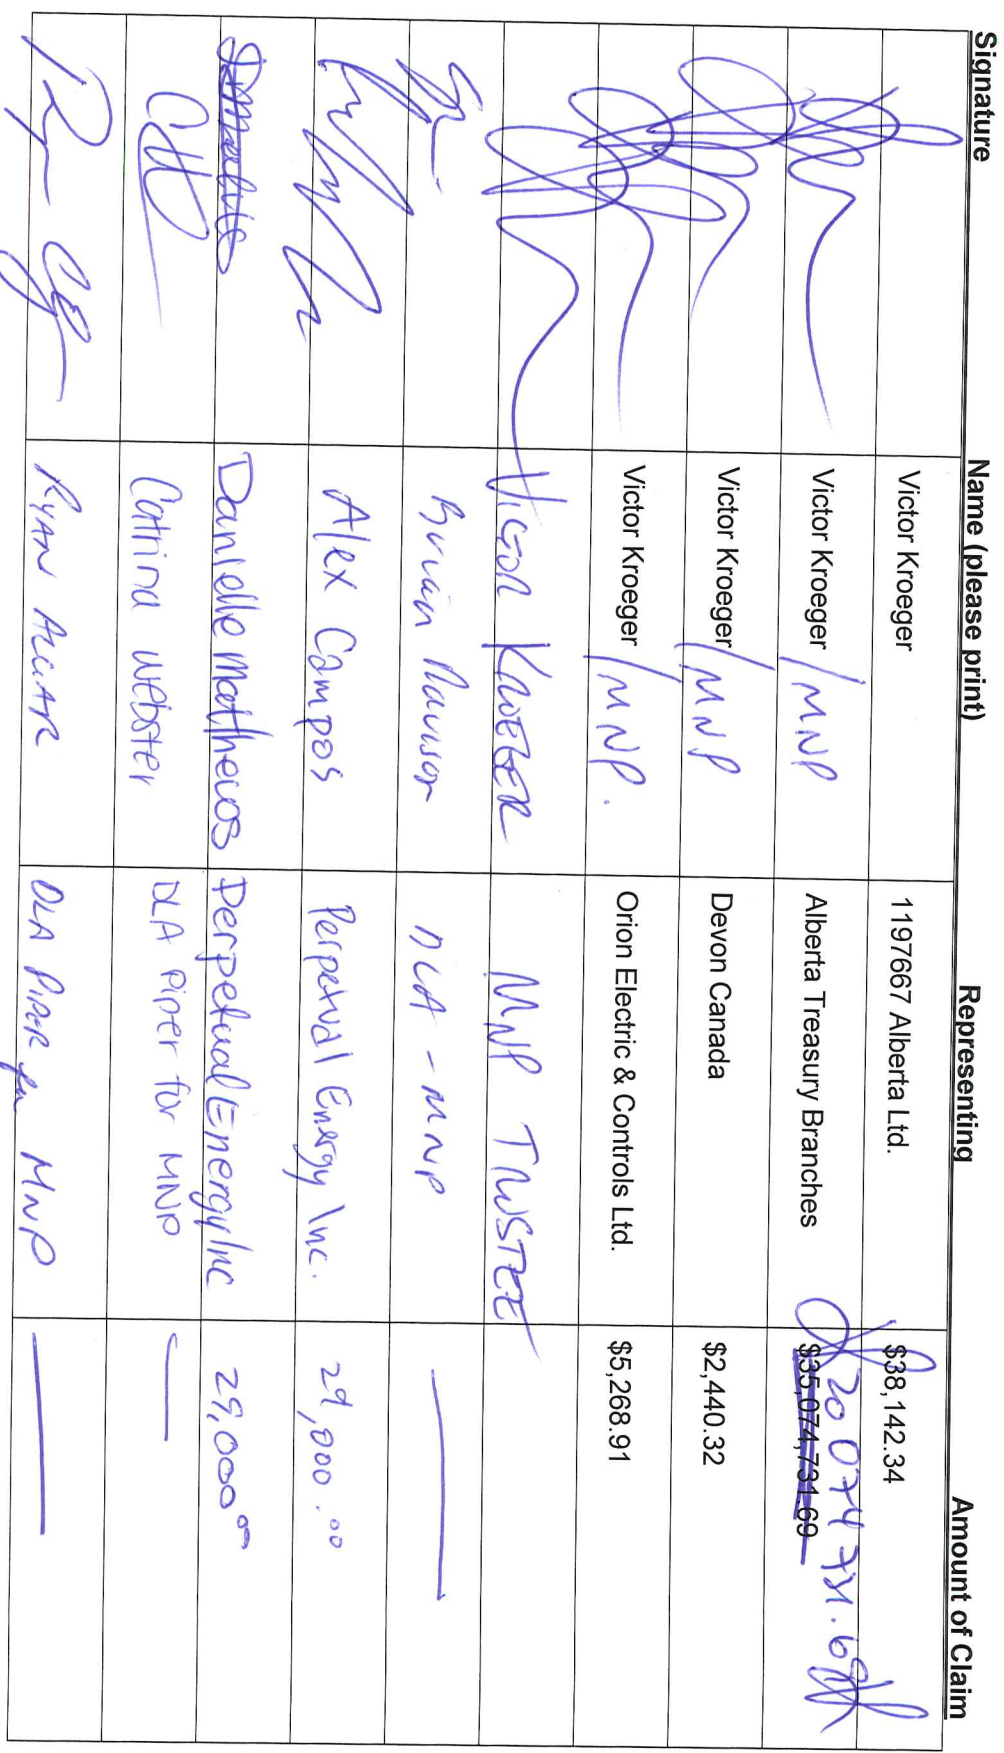 Signature Name (please print) Representing Amount of Claim
Victor Kroeger 1197667 Alberta Ltd. $38,142.34
Victor Kroeger /MNP Alberta Treasury Branches $35,074,731.69 20 074 731.69
Victor Kroeger /MNP Devon Canada $2,440.32
Victor Kroeger /MNP. Orion Electric & Controls Ltd. $5,268.91
VICTOR KROEGER MNP TRUSTEE
Alex Campos Perpetual Energy Inc. 29,000.00
Danielle Matthews Perpetual Energy Inc 29,000 00
Catrina Webster DLA Piper for MNP —
RYAN ALGAR DLA PIPER for MNP —